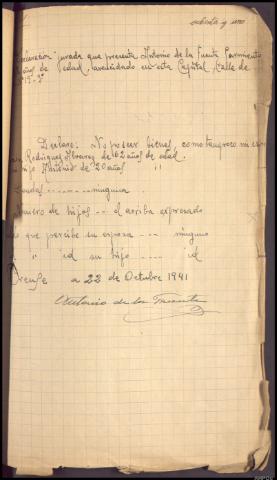 ochenta y uno
declaración jurada que presenta Antonio de la Fuente Sarmiento
años de edad, avecindado en esta Capital, calle de
Declaro: No poseer bienes, como tampoco mi
Rodriguez Alvarez de 62 años de edad.
hijo Antonio de 20 años "
ninguna.
número de hijos -- el arriba expresado
que percibe su esposa --- ninguno
" " id su hijo ---- id
Orense a 22 de Octubre 1941
Antonio de la Fuente